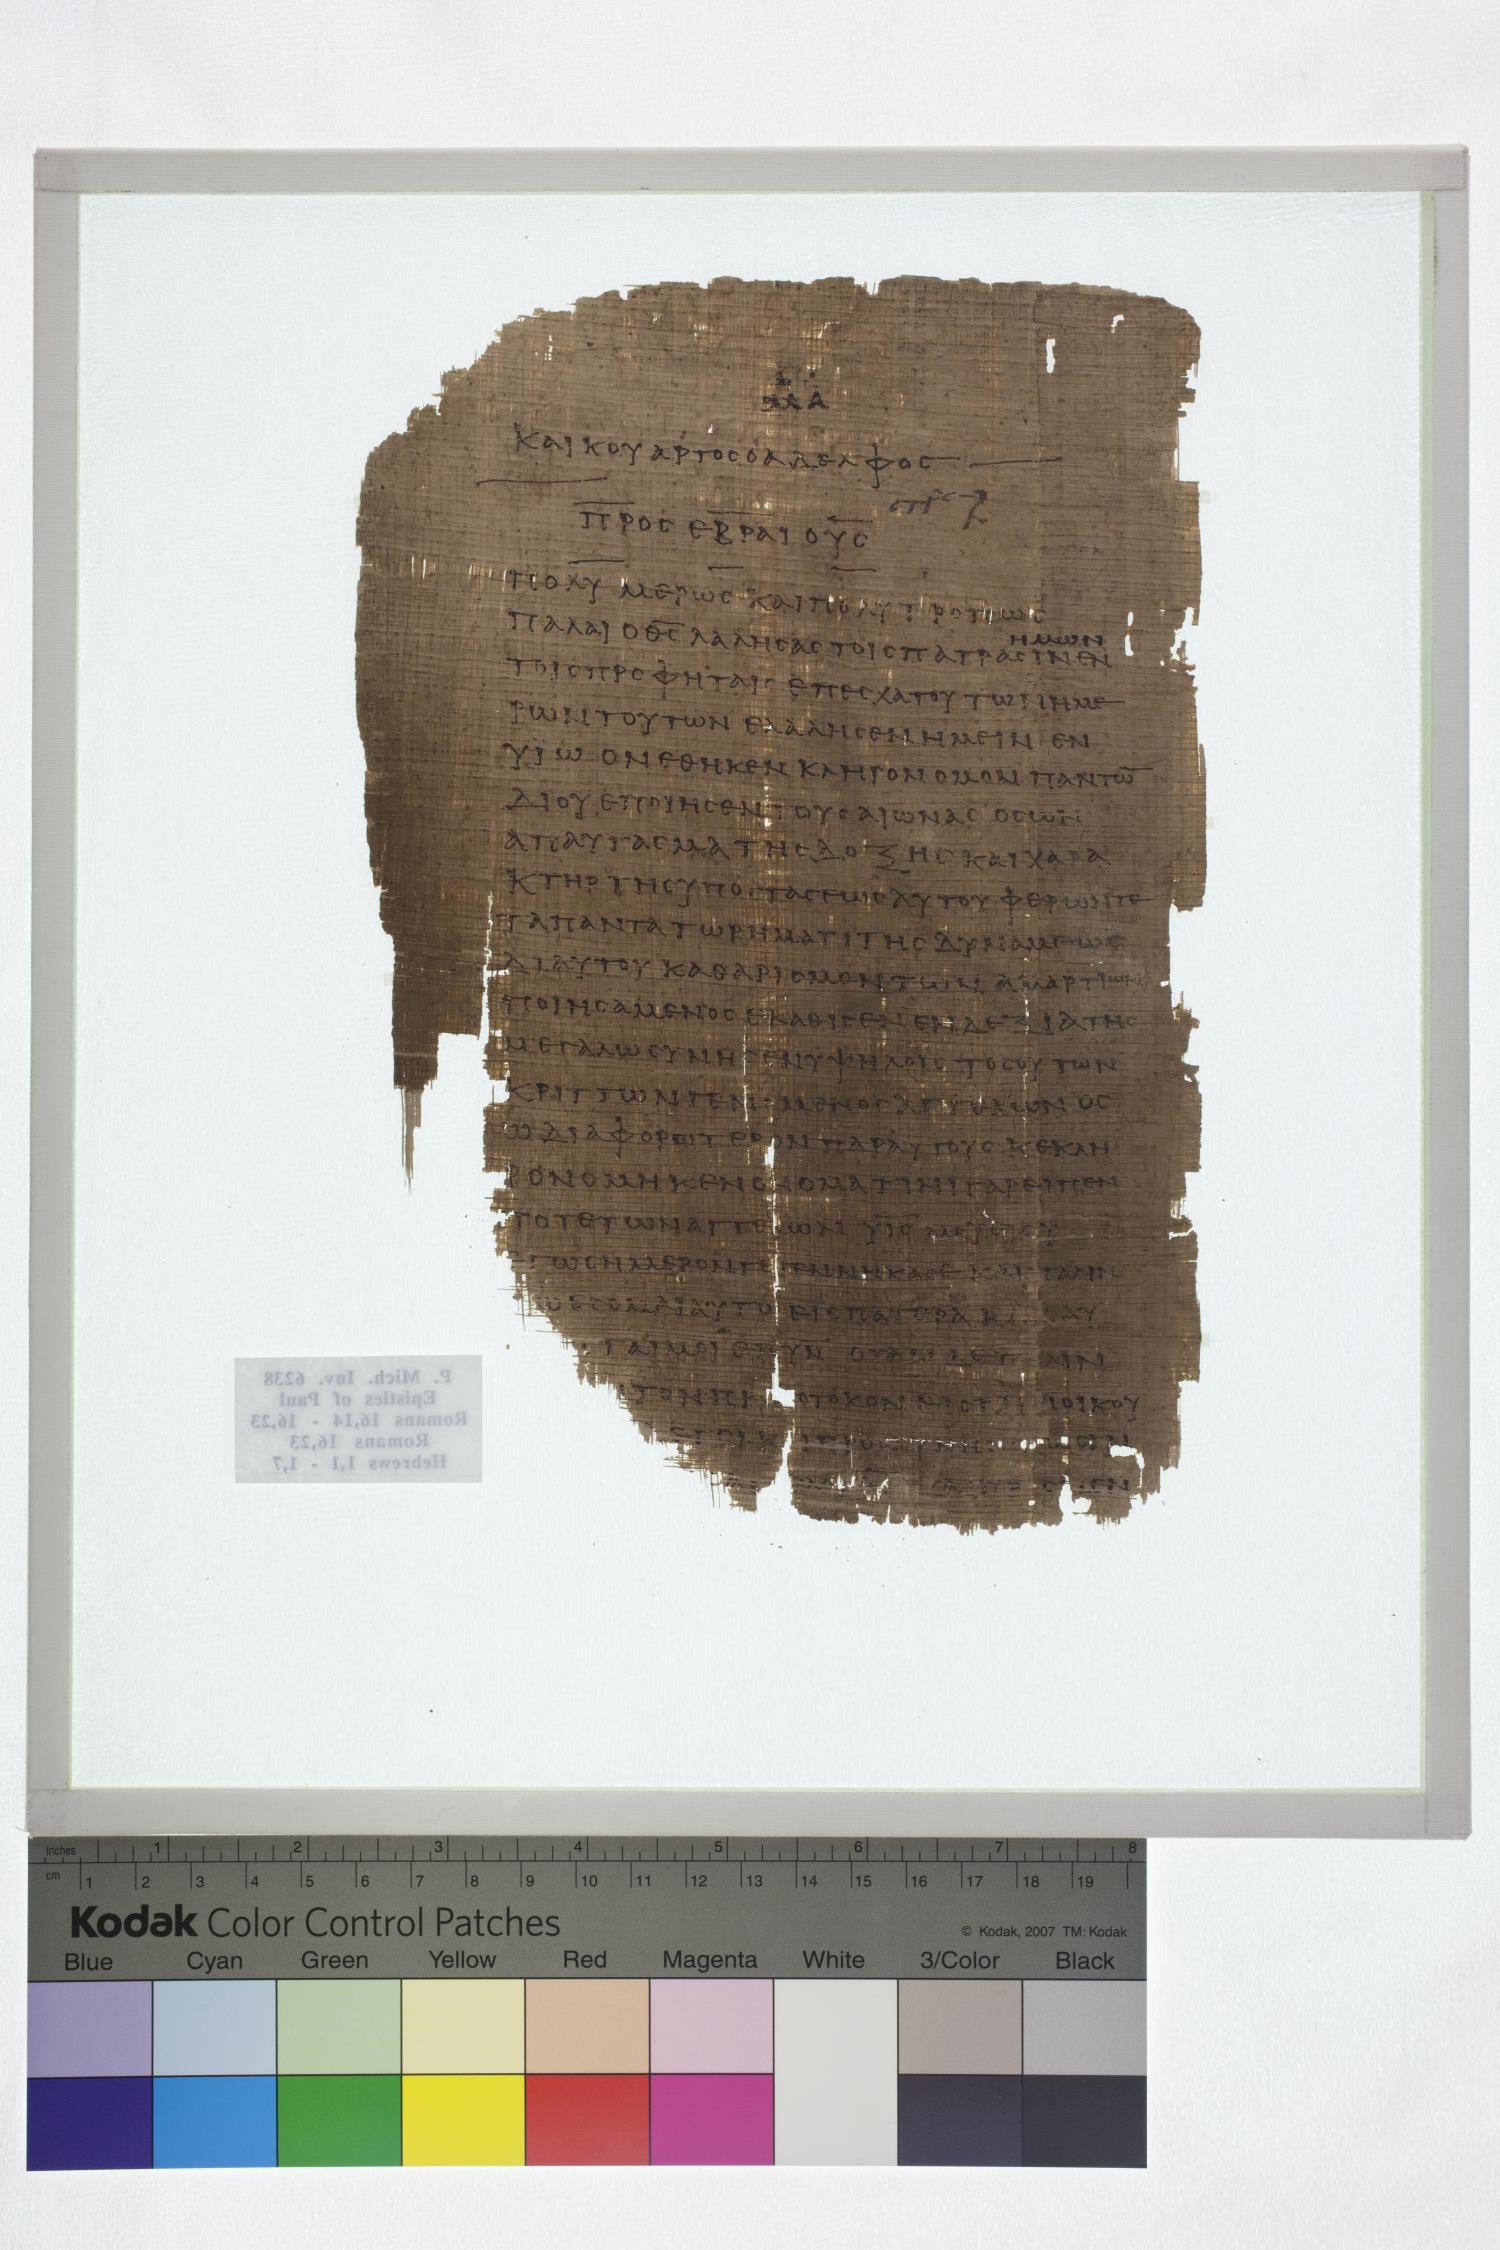 ΜΑ
ΚΑΙ ΚΟΥΑΡΤΟΣ Ο ΑΔΕΛΦΟΣ
ΠΡΟΣ ΕΒΡΑΙΟΥΣ
ΠΟΛΥΜΕΡΩΣ ΚΑΙ ΠΟΛΥΤΡΟΠΩΣ
ΗΜΩΝ
ΠΑΛΑΙ Ο Θ̅Σ̅ ΛΑΛΗΣΑΣ ΤΟΙΣ ΠΑΤΡΑΣΙΝ ΕΝ
ΤΟΙΣ ΠΡΟΦΗΤΑΙΣ ΕΠ ΕΣΧΑΤΟΥ ΤΩΝ ΗΜΕ
ΡΩΝ ΤΟΥΤΩΝ ΕΛΑΛΗΣΕΝ ΗΜΕΙΝ ΕΝ
ΥΪΩ ΟΝ ΕΘΗΚΕΝ ΚΛΗΡΟΝΟΜΟΝ ΠΑΝΤΩ̅
ΔΙ ΟΥ ΕΠΟΙΗΣΕΝ ΤΟΥΣ ΑΙΩΝΑΣ ΟΣ ΩΝ
ΑΠΑΥΓΑΣΜΑ ΤΗΣ ΔΟΞΗΣ ΚΑΙ ΧΑΡΑ
ΚΤΗΡ ΤΗΣ ΥΠΟΣΤΑΣΕΩΣ ΑΥΤΟΥ ΦΕΡΩΝ ΤΕ
ΤΑ ΠΑΝΤΑ ΤΩ ΡΗΜΑΤΙ ΤΗΣ ΔΥΝΑΜΕΩΣ
ΔΙ ΑΥΤΟΥ ΚΑΘΑΡΙΣΜΟΝ ΤΩΝ ΑΜΑΡΤΙΩΝ
ΠΟΙΗΣΑΜΕΝΟΣ ΕΚΑΘΙΣΕΝ ΕΝ ΔΕΞΙΑ ΤΗΣ
ΜΕΓΑΛΩΣΥΝΗΣ ΕΝ ΥΨΗΛΟΙΣ ΤΟΣΟΥΤΩΝ
ΚΡΙΤΤΩΝ ΓΕΝΟΜΕΝΟΣ ΑΓΓΕΛΩΝ ΟΣ
Ω ΔΙΑΦΟΡΩΤΕΡΟΝ ΠΑΡ ΑΥΤΟΥΣ ΚΕΚΛΗ
ΡΟΝΟΜΗΚΕΝ ΟΝΟΜΑ ΤΙΝΙ ΓΑΡ ΕΙΠΕΝ
ΠΟΤΕ ΤΩΝ ΑΓΓΕΛΩΝ Υ̅Ι̅Σ̅ ΜΟΥ ΕΙ ΣΥ
ΕΓΩ ΣΗΜΕΡΟΝ ΓΕΓΕΝΝΗΚΑ ΣΕ ΚΑΙ ΠΑΛΙΝ
ΕΣΟΜΑΙ ΑΥΤΩ ΕΙΣ ΠΑΤΕΡΑ ΚΑΙ ΑΥ
ΤΑΙ ΜΟΙ ΕΙΣ ΥΝ ΟΤΑΝ ΔΕ ΠΑΛΙΝ
ΤΟΝ ΠΡΩΤΟΤΟΚΟΝ ΟΙΚΟΥ
P. Mich. Inv. 6238
Epistles of Paul
Romans 16,14 - 16,23
Romans 16,23
Hebrews 1,1 - 1,7
inches 1 2 3 4 5 6 7 8
cm 1 2 3 4 5 6 7 8 9 10 11 12 13 14 15 16 17 18 19
Kodak Color Control Patches
© Kodak, 2007 TM: Kodak
Blue Cyan Green Yellow Red Magenta White 3/Color Black